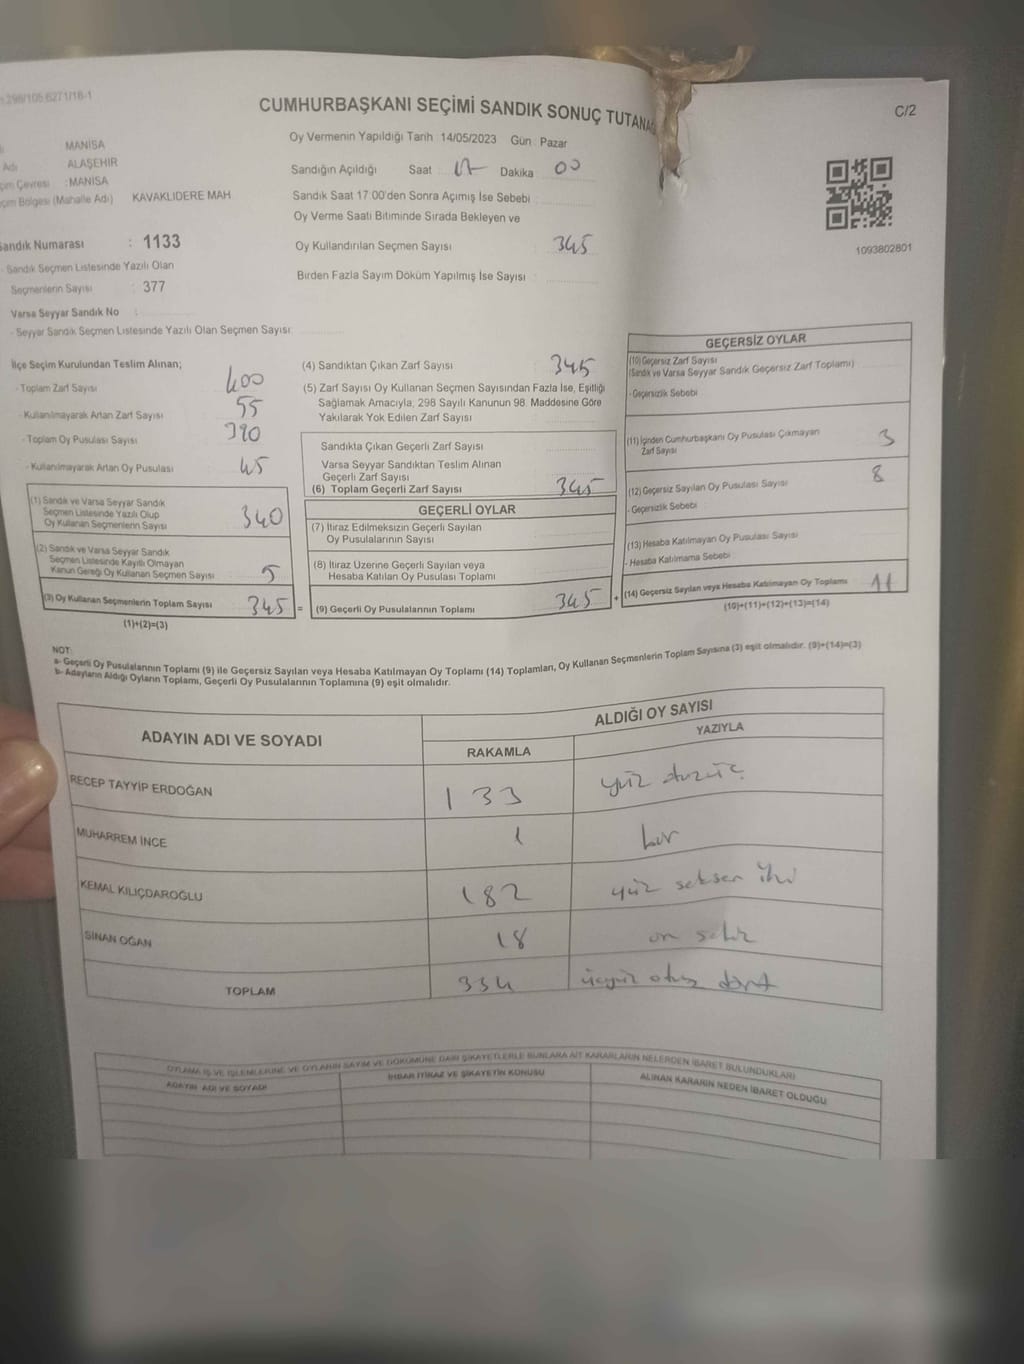 298/105.6271/18-1
CUMHURBAŞKANI SEÇİMİ SANDIK SONUÇ TUTANAĞ
C/2
MANİSA
Adı ALAŞEHİR
çim Çevresi : MANİSA
çim Bölgesi (Mahalle Adı) KAVAKLIDERE MAH
Sandık Numarası : 1133
- Sandık Seçmen Listesinde Yazılı Olan
Seçmenlerin Sayısı : 377
Varsa Seyyar Sandık No :
- Seyyar Sandık Seçmen Listesinde Yazılı Olan Seçmen Sayısı:
Oy Vermenin Yapıldığı Tarih :14/05/2023 Gün : Pazar
Sandığın Açıldığı Saat : 17 Dakika : 00
Sandık Saat 17:00'den Sonra Açımış İse Sebebi :
Oy Verme Saati Bitiminde Sırada Bekleyen ve
Oy Kullandırılan Seçmen Sayısı : 345
Birden Fazla Sayım Döküm Yapılmış İse Sayısı :
1093802801
İlçe Seçim Kurulundan Teslim Alınan;
- Toplam Zarf Sayısı : 400
- Kullanılmayarak Artan Zarf Sayısı : 55
- Toplam Oy Pusulası Sayısı : 390
- Kullanılmayarak Artan Oy Pusulası : 45
(1) Sandık ve Varsa Seyyar Sandık
Seçmen Listesinde Yazılı Olup
Oy Kullanan Seçmenlerin Sayısı : 340
(2) Sandık ve Varsa Seyyar Sandık
Seçmen Listesinde Kayıtlı Olmayan
Kanun Gereği Oy Kullanan Seçmen Sayısı : 5
(3) Oy Kullanan Seçmenlerin Toplam Sayısı : 345 =
(1)+(2)=(3)
(4) Sandıktan Çıkan Zarf Sayısı : 345
(5) Zarf Sayısı Oy Kullanan Seçmen Sayısından Fazla İse, Eşitliği
Sağlamak Amacıyla, 298 Sayılı Kanunun 98. Maddesine Göre
Yakılarak Yok Edilen Zarf Sayısı :
Sandıkta Çıkan Geçerli Zarf Sayısı :
Varsa Seyyar Sandıktan Teslim Alınan
Geçerli Zarf Sayısı :
(6) Toplam Geçerli Zarf Sayısı : 345
GEÇERLİ OYLAR
(7) İtiraz Edilmeksizin Geçerli Sayılan
Oy Pusulalarının Sayısı :
(8) İtiraz Üzerine Geçerli Sayılan veya
Hesaba Katılan Oy Pusulası Toplamı :
(9) Geçerli Oy Pusulalarının Toplamı : 345 +
GEÇERSİZ OYLAR
(10) Geçersiz Zarf Sayısı
(Sandık ve Varsa Seyyar Sandık Geçersiz Zarf Toplamı) :
- Geçersizlik Sebebi :
(11) İçinden Cumhurbaşkanı Oy Pusulası Çıkmayan
Zarf Sayısı : 3
(12) Geçersiz Sayılan Oy Pusulası Sayısı : 8
- Geçersizlik Sebebi :
(13) Hesaba Katılmayan Oy Pusulası Sayısı :
- Hesaba Katılmama Sebebi :
(14) Geçersiz Sayılan veya Hesaba Katılmayan Oy Toplamı : 11
(10)+(11)+(12)+(13)=(14)
NOT:
a- Geçerli Oy Pusulalarının Toplamı (9) ile Geçersiz Sayılan veya Hesaba Katılmayan Oy Toplamı (14) Toplamları, Oy Kullanan Seçmenlerin Toplam Sayısına (3) eşit olmalıdır. (9)+(14)=(3)
b- Adayların Aldığı Oyların Toplamı, Geçerli Oy Pusulalarının Toplamına (9) eşit olmalıdır.
ADAYIN ADI VE SOYADI ALDIĞI OY SAYISI
RAKAMLA YAZIYLA
RECEP TAYYİP ERDOĞAN 133 yüz otuzüç
MUHARREM İNCE 1 bir
KEMAL KILIÇDAROĞLU 182 yüz seksen iki
SİNAN OĞAN 18 on sekiz
TOPLAM 334 üçyüz otuz dört
OYLAMA İŞ VE İŞLEMLERİNE VE OYLARIN SAYIM VE DÖKÜMÜNE DAİR ŞİKAYETLERLE BUNLARA AİT KARARLARIN NELERDEN İBARET BULUNDUKLARI
ADAYIN ADI VE SOYADI İHBAR İTİRAZ VE ŞİKAYETİN KONUSU ALINAN KARARIN NEDEN İBARET OLDUĞU